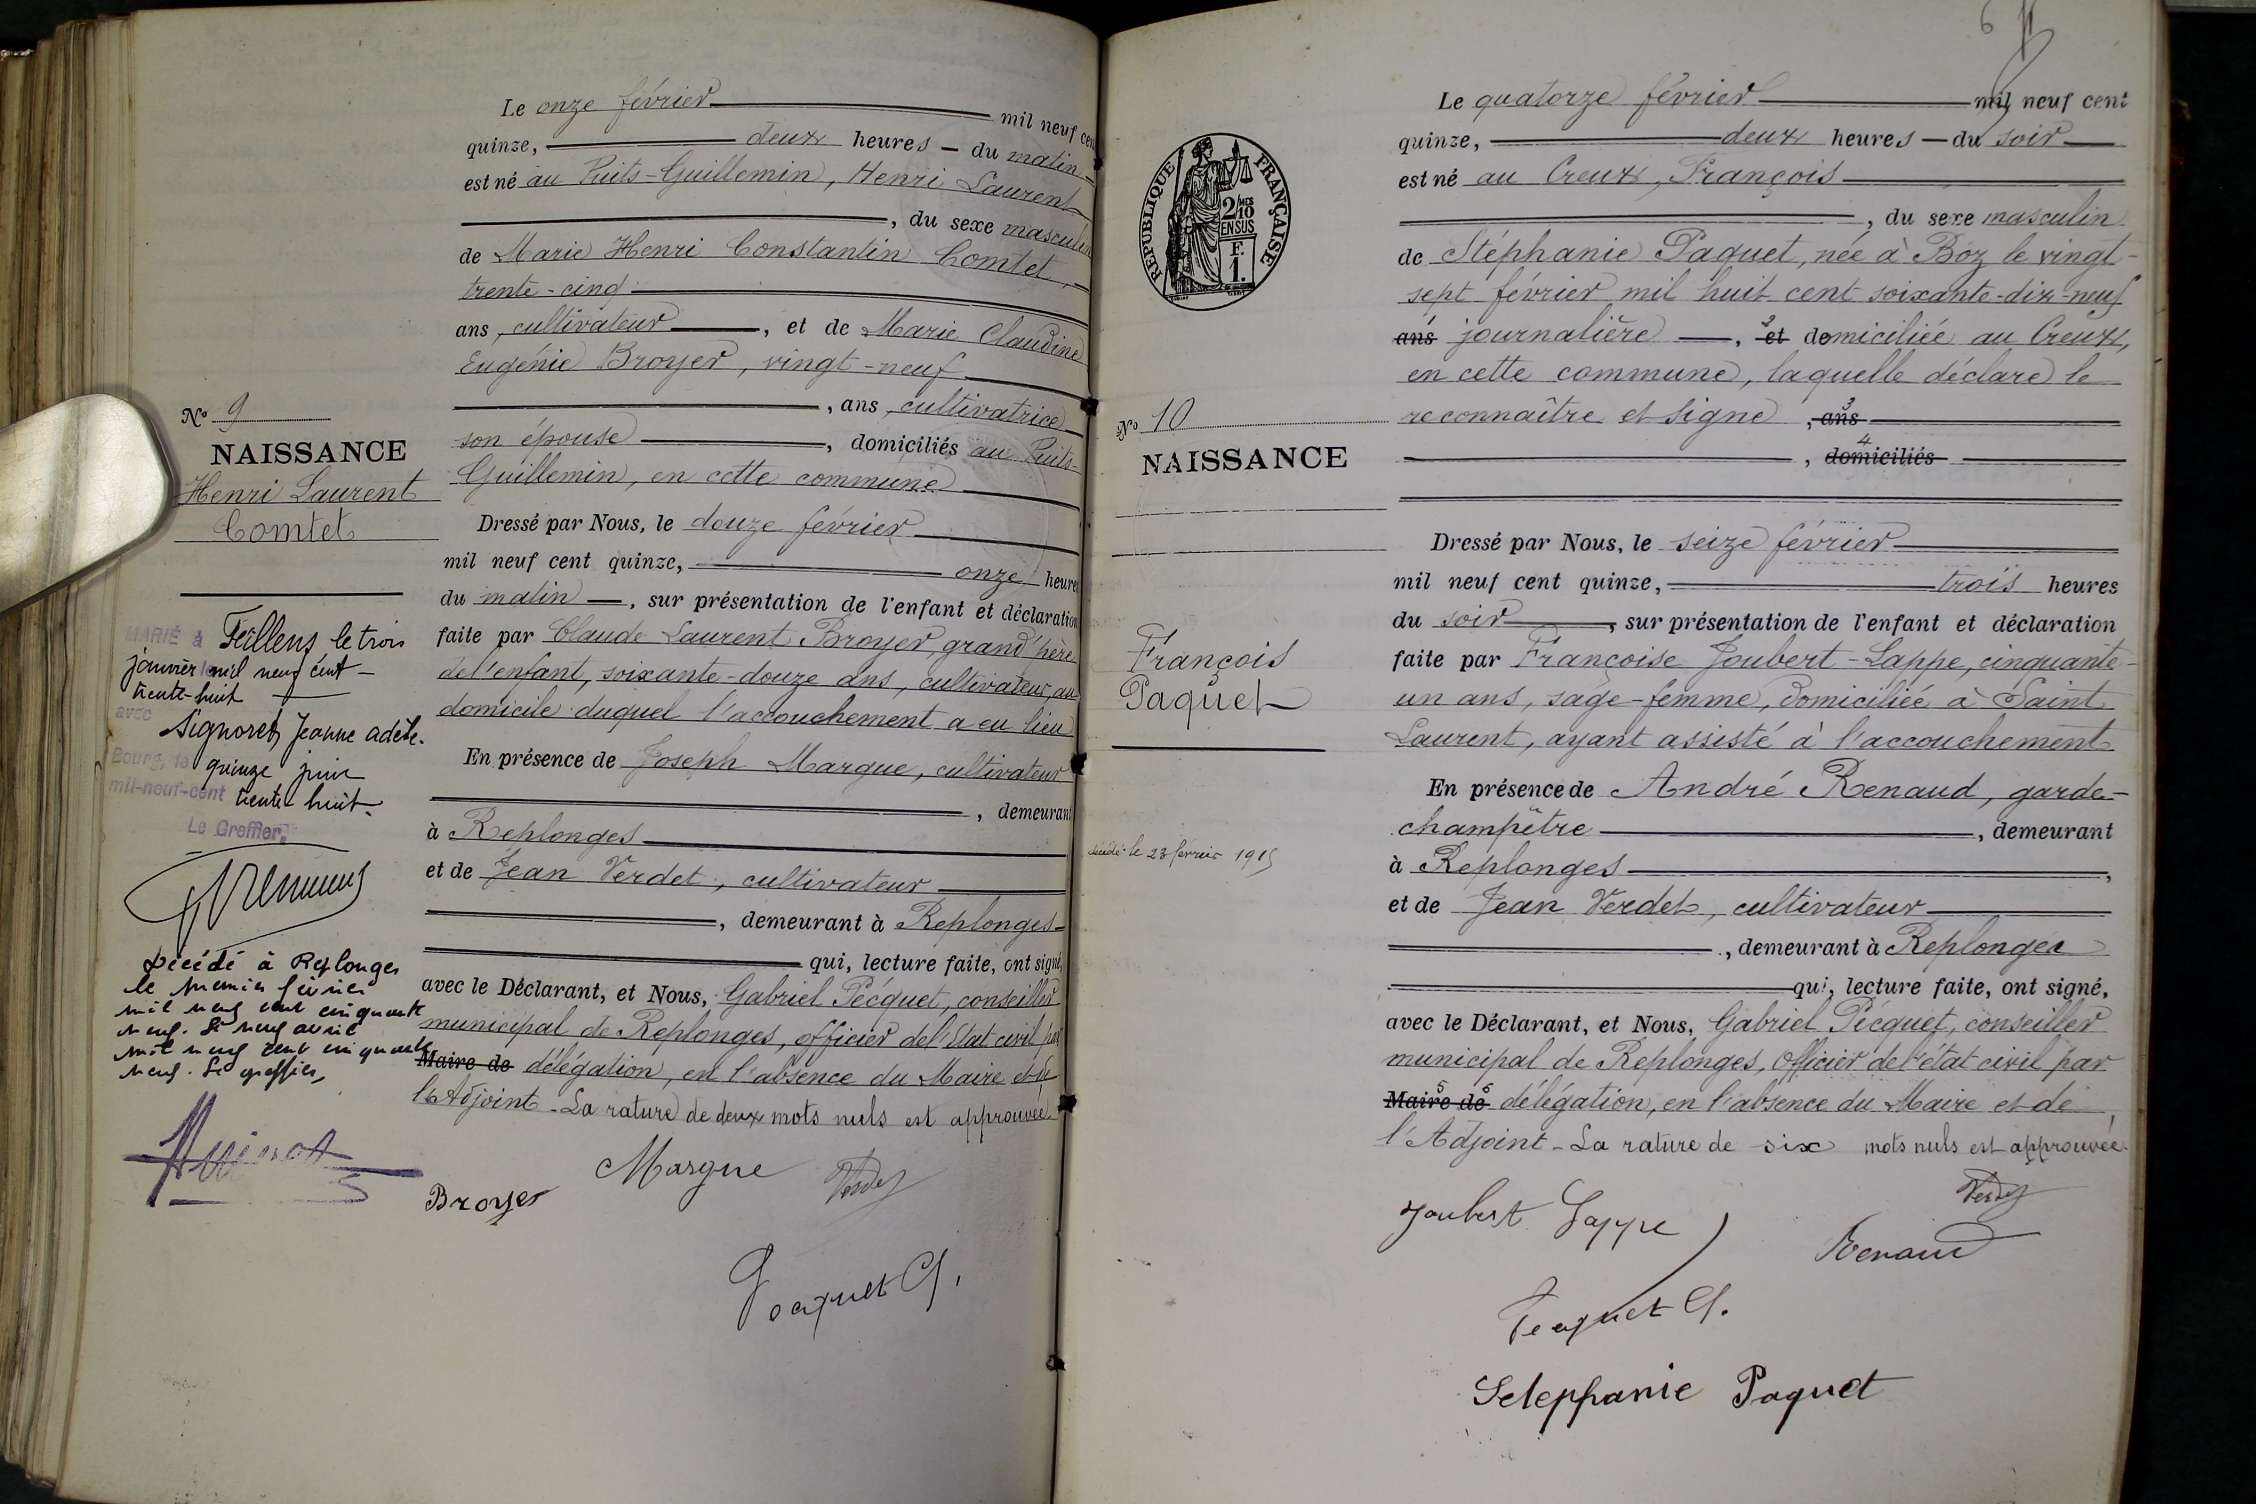 Le onze février mil neuf cen
quinze, deux heures - du matin
est né au Puits-Guillemin, Henri Laurent
, du sexe masculin
de Marie Henri Constantin Comtet,
trente-cinq
ans, cultivateur, et de Marie Claudine
Eugénie Broyer, vingt-neuf
, ans, cultivatrice
son épouse, domiciliés au Puits-
Guillemin, en cette commune
Dressé par Nous, le douze février
mil neuf cent quinze, onze heures
du matin, sur présentation de l'enfant et déclaration
faite par Claude Laurent Broyer, grand'père
de l'enfant, soixante-douze ans, cultivateur, au
domicile duquel l'accouchement a eu lieu
En présence de Joseph Margue, cultivateur
, demeurant
à Replonges
et de Jean Verdet, cultivateur
, demeurant à Replonges
qui, lecture faite, ont signé,
avec le Déclarant, et Nous, Gabriel Pécquet, conseiller
municipal de Replonges, officier de l'Etat civil par
Maire de délégation, en l'absence du Maire et de
l'Adjoint - La rature de deux mots nuls est approuvée
Margue Verdet
Broyer
Pecquet G.
No 9
NAISSANCE
Henri Laurent
Comtet
MARIÉ à Feillens le trois
janvier mil neuf cent
trente-huit
avec
Signoret Jeanne Adèle.
Bourg, le quinze juin
mil-neuf-cent trente huit
Le Greffier,
Décédé à Replonges
le premier février
mil neuf cent cinquante
neuf. Le neuf avril
mil neuf cent cinquante
neuf. Le greffier,
6
Le quatorze février mil neuf cent
quinze, deux heures - du soir
est né au Creux, François
, du sexe masculin
de Stéphanie Paquet, née à Boz le vingt-
sept février mil huit cent soixante-dix-neuf
ans journalière, et domiciliée au Creux,
en cette commune, laquelle déclare le
reconnaître et signe, ans
, domiciliés
Dressé par Nous, le seize février
mil neuf cent quinze, trois heures
du soir, sur présentation de l'enfant et déclaration
faite par Françoise Joubert-Lappe, cinquante-
un ans, sage-femme, domiciliée à Saint
Laurent, ayant assisté à l'accouchement
En présence de André Renaud, garde-
champêtre, demeurant
à Replonges,
et de Jean Verdet, cultivateur
, demeurant à Replonges
qui, lecture faite, ont signé,
avec le Déclarant, et Nous, Gabriel Pécquet, conseiller
municipal de Replonges, officier de l'état civil par
Maire de délégation, en l'absence du Maire et de
l'Adjoint - La rature de six mots nuls est approuvée
Verdet
Joubert Lappe
Renaud
Pecquet G.
Stephanie Paquet
RÉPUBLIQUE FRANÇAISE
2/10 MES
EN SUS
F.
1.
No 10
NAISSANCE
François
Paquet
décédé le 23 février 1915